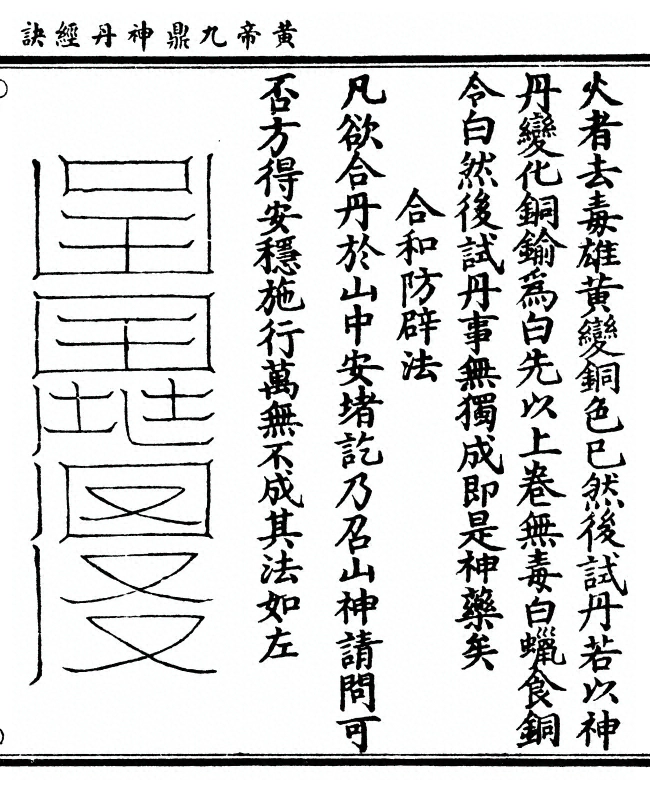 黃帝九鼎神丹經訣
火者去毒雄黃變銅色已然後試丹若以神
丹變化銅鍮為白先以上卷無毒白蠟食銅
令白然後試丹事無獨成即是神藥矣
合和防辟法
凡欲合丹於山中安堵訖乃召山神請問可
否方得安穩施行萬無不成其法如左